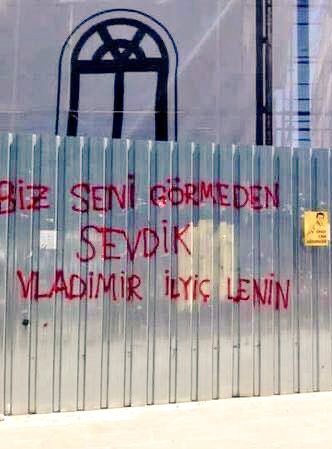 BİZ SENİ GÖRMEDEN
SEVDİK
VLADİMİR İLYİÇ LENİN